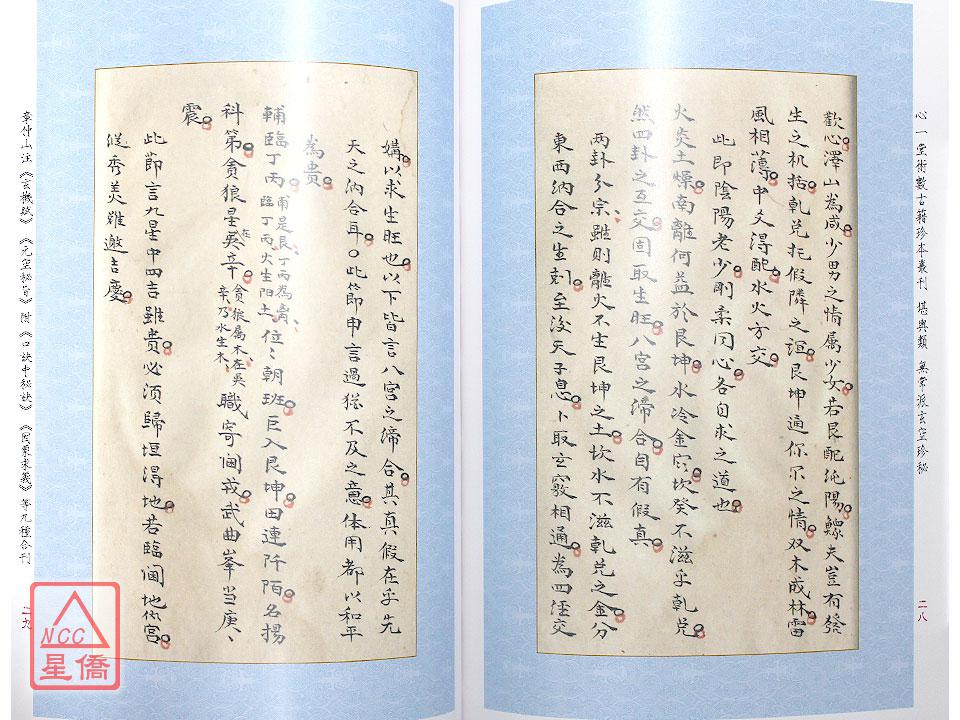 心一堂術數古籍珍本叢刊 堪輿類 無常派玄空珍秘
歡心澤山為咸少男之情属少女若艮配純陽鰥夫豈有發
生之机括乹兑托假隣之誼艮坤通你尒之情双木成林雷
風相薄中爻得配水火方交
此即陰陽老少剛柔同心各自求之道也
火炎土燥南離何益於艮坤水冷金寒坎癸不滋乎乹兑
然四卦之互交固取生旺八宮之締合自有假真
两卦分宗雖則離火不生艮坤之土坎水不滋乹兑之金分
東西納合之生剋至没天子息卜取玄竅相通為四陘交
二八
媾以求生旺也以下皆言八宮之締合其真假在乎先
天之納合耳○此節申言過猶不及之意体用都以和平
為貴
輔臨丁丙甫是艮丁丙為貴臨丁丙火生阳土位〻朝班巨入艮坤田連阡陌名揚
科第貪狼星在巽辛貪狼属木在巽辛乃水生木職寄閫戎武曲峯当庚〻
震
此節言九星中四言雖貴必須歸垣得地若臨閫地依宫
従秀美难邀吉慶
章仲山注《玄機賦》《元空秘旨》附《口訣中秘訣》《因象求義》等九種合刊
二九
NCC
星僑